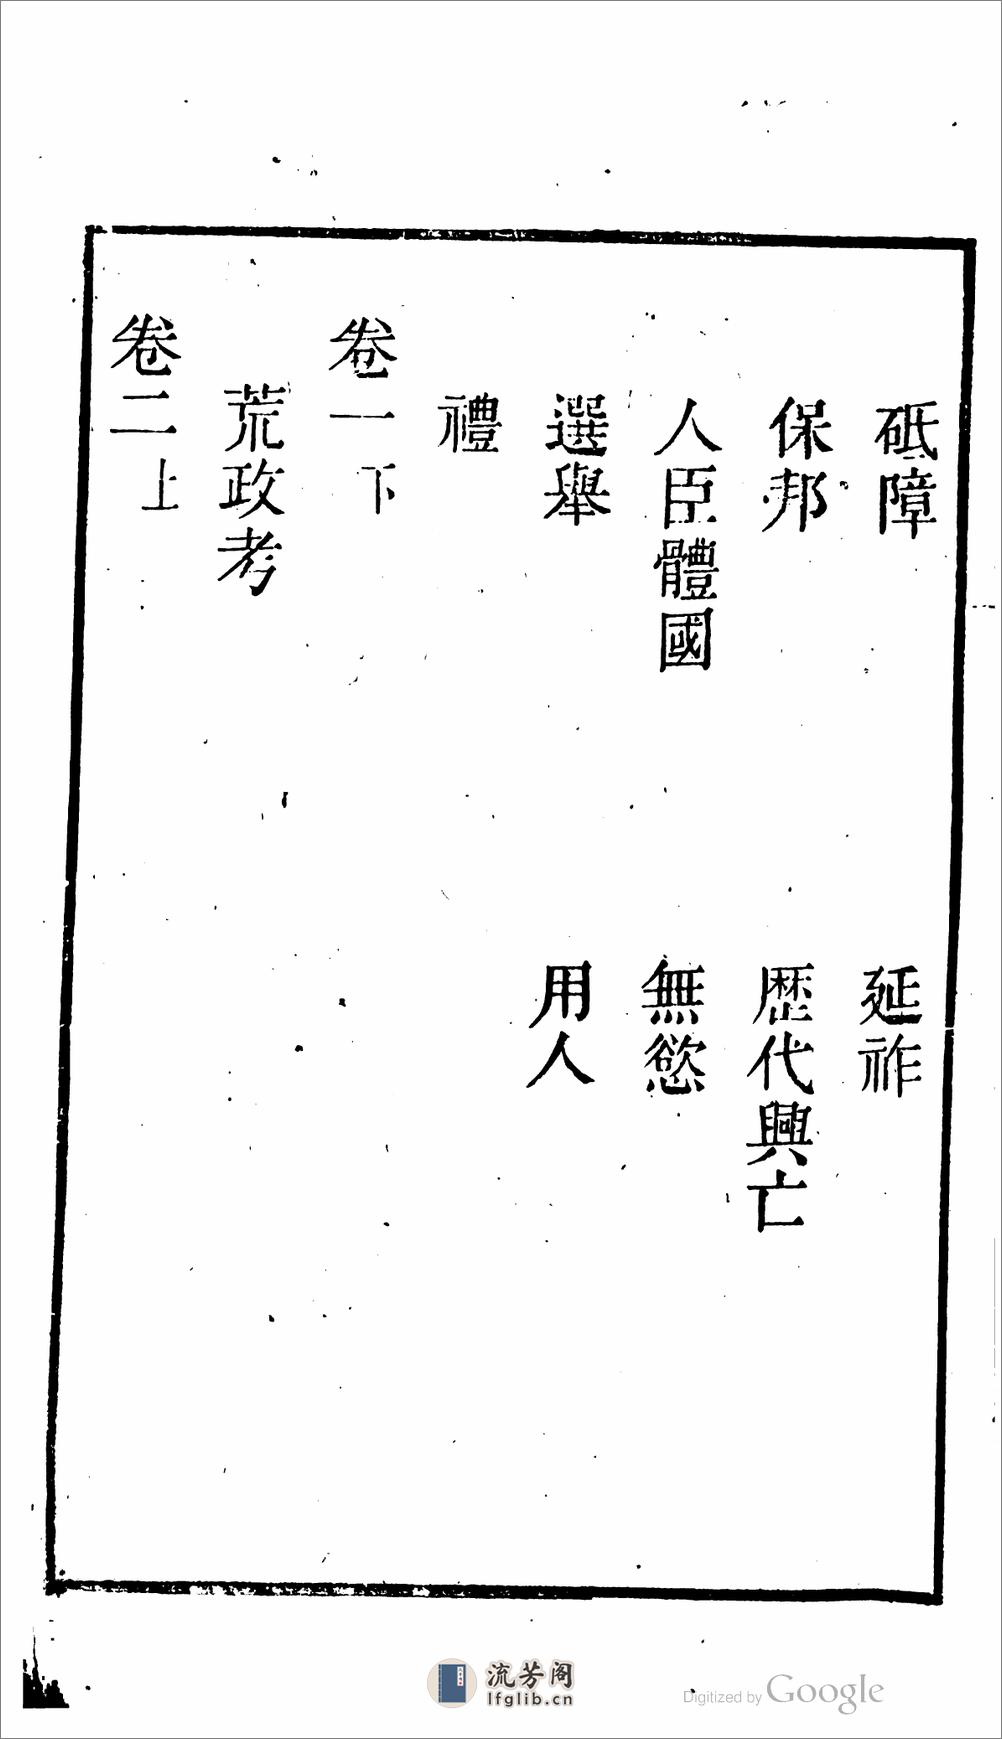 砥障　延祚
保邦　歴代興亡
人臣體國　無慾
選舉　用人
禮
卷一下
荒政考
卷二上
流芳阁
lfglib.cn
Digitized by Google